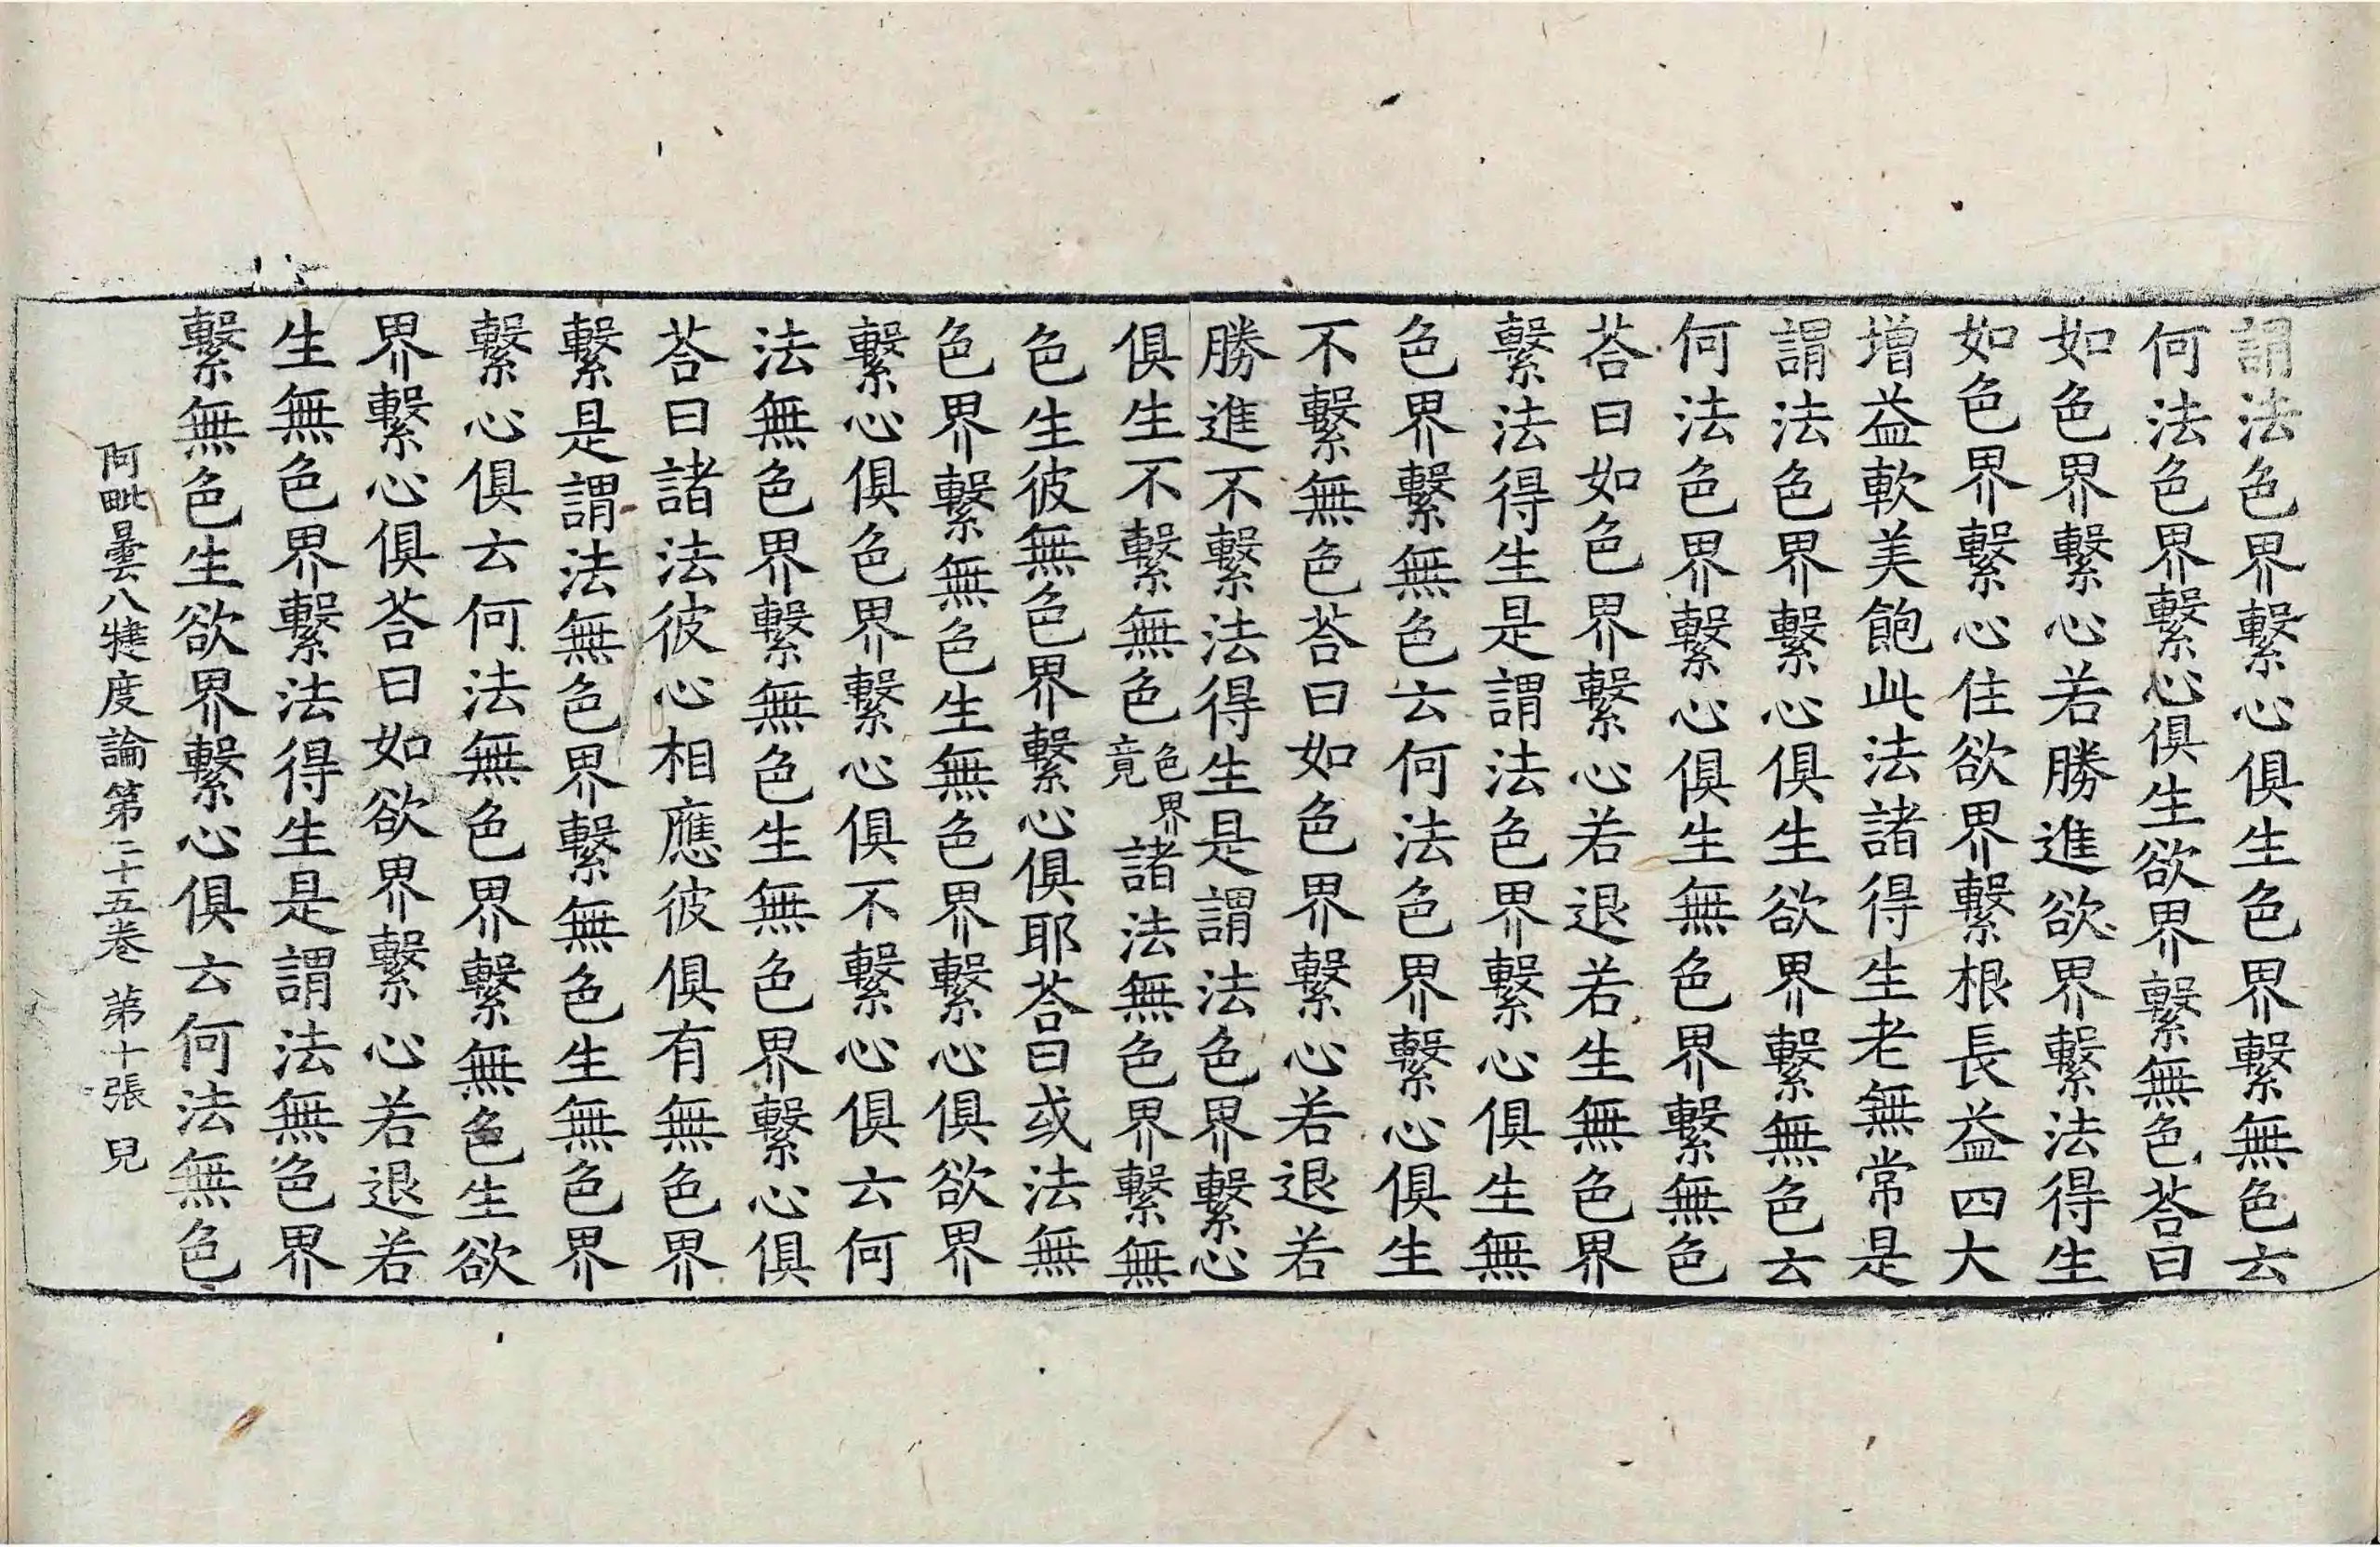 謂法色界繫心俱生色界繫無色云
何法色界繫心俱生欲界繫無色荅曰
如色界繫心若勝進欲界繫法得生
如色界繫心住欲界繫根長益四大
增益軟美飽此法諸得生老無常是
謂法色界繫心俱生欲界繫無色云
何法色界繫心俱生無色界繫無色
荅曰如色界繫心若退若生無色界
繫法得生是謂法色界繫心俱生無
色界繫無色云何法色界繫心俱生
不繫無色荅曰如色界繫心若退若
勝進不繫法得生是謂法色界繫心
俱生不繫無色色界竟諸法無色界繫無
色生彼無色界繫心俱耶荅曰或法無
色界繫無色生無色界繫心俱欲界
繫心俱色界繫心俱不繫心俱云何
法無色界繫無色生無色界繫心俱
荅曰諸法彼心相應彼俱有無色界
繫是謂法無色界繫無色生無色界
繫心俱云何法無色界繫無色生欲
界繫心俱荅曰如欲界繫心若退若
生無色界繫法得生是謂法無色界
繫無色生欲界繫心俱云何法無色
阿毗曇八犍度論第二十五卷 第十張 皃